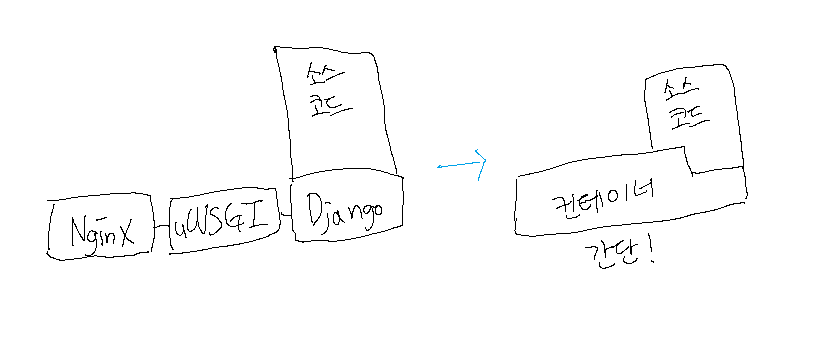 소스
코드
Nginx
uWSGI
Django
소스
코드
컨테이너
간단!